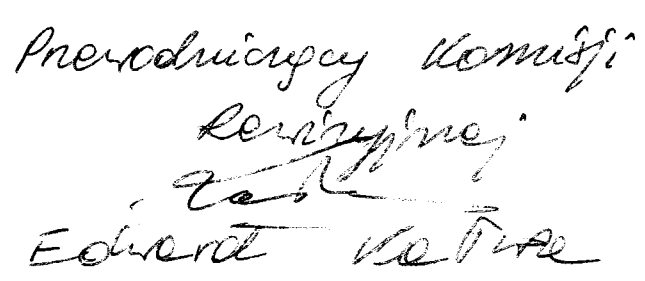 Przewodniczący Komisji
Rewizyjnej
Edward